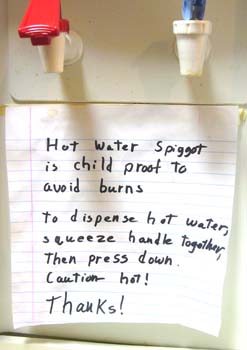 Hot Water Spiggot
is child proof to
avoid burns
to dispense hot water,
squeeze handle together,
then press down.
Caution hot!
Thanks!